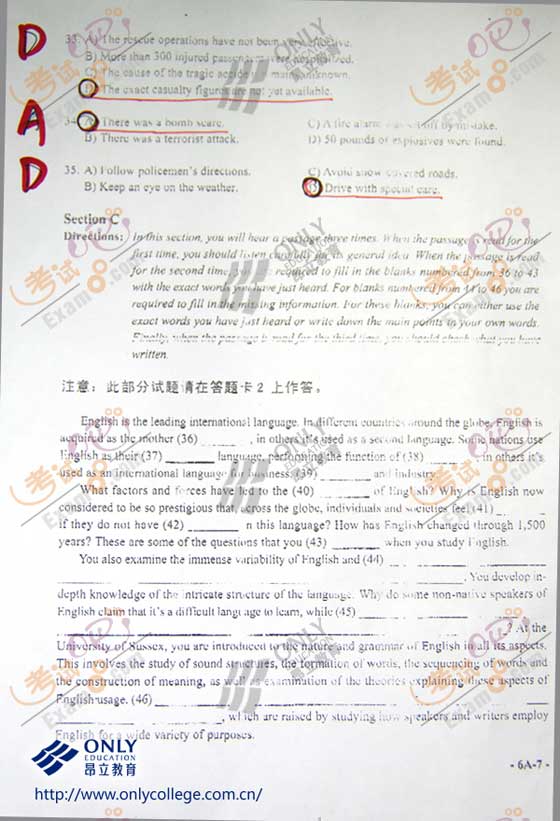 D
33. A) The rescue operations have not been very effective.
B) More than 300 injured passengers were hospitalized.
C) The cause of the tragic accident remains unknown.
D) The exact casualty figures are not yet available.
A
34. A) There was a bomb scare.
C) A fire alarm was set off by mistake.
B) There was a terrorist attack.
D) 50 pounds of explosives were found.
D
35. A) Follow policemen's directions.
C) Avoid snow-covered roads.
B) Keep an eye on the weather.
D) Drive with special care.
Section C
Directions: In this section, you will hear a passage three times. When the passage is read for the
first time, you should listen carefully for its general idea. When the passage is read
for the second time, you are required to fill in the blanks numbered from 36 to 43
with the exact words you have just heard. For blanks numbered from 44 to 46 you are
required to fill in the missing information. For these blanks, you can either use the
exact words you have just heard or write down the main points in your own words.
Finally, when the passage is read for the third time, you should check what you have
written.
注意：此部分试题请在答题卡 2 上作答。
English is the leading international language. In different countries around the globe, English is
acquired as the mother (36) ________, in others it's used as a second language. Some nations use
English as their (37) ________ language, performing the function of (38) ________; in others it's
used as an international language for business, (39) ________ and industry.
What factors and forces have led to the (40) ________ of English? Why is English now
considered to be so prestigious that, across the globe, individuals and societies feel (41) ________
if they do not have (42) ________ in this language? How has English changed through 1,500
years? These are some of the questions that you (43) ________ when you study English.
You also examine the immense variability of English and (44) ________
________. You develop in-
depth knowledge of the intricate structure of the language. Why do some non-native speakers of
English claim that it's a difficult language to learn, while (45) ________
________? At the
University of Sussex, you are introduced to the nature and grammar of English in all its aspects.
This involves the study of sound structures, the formation of words, the sequencing of words and
the construction of meaning, as well as examination of the theories explaining these aspects of
English usage. (46) ________
________, which are raised by studying how speakers and writers employ
English for a wide variety of purposes.
- 6A-7 -
ONLY
EDUCATION
昂立教育
http://www.onlycollege.com.cn/
考试吧
Exam8.com